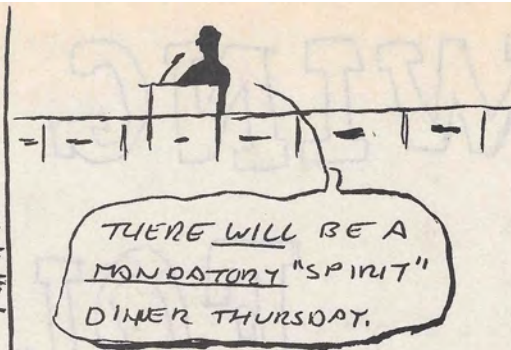 THERE WILL BE A
MANDATORY "SPIRIT"
DINER THURSDAY.